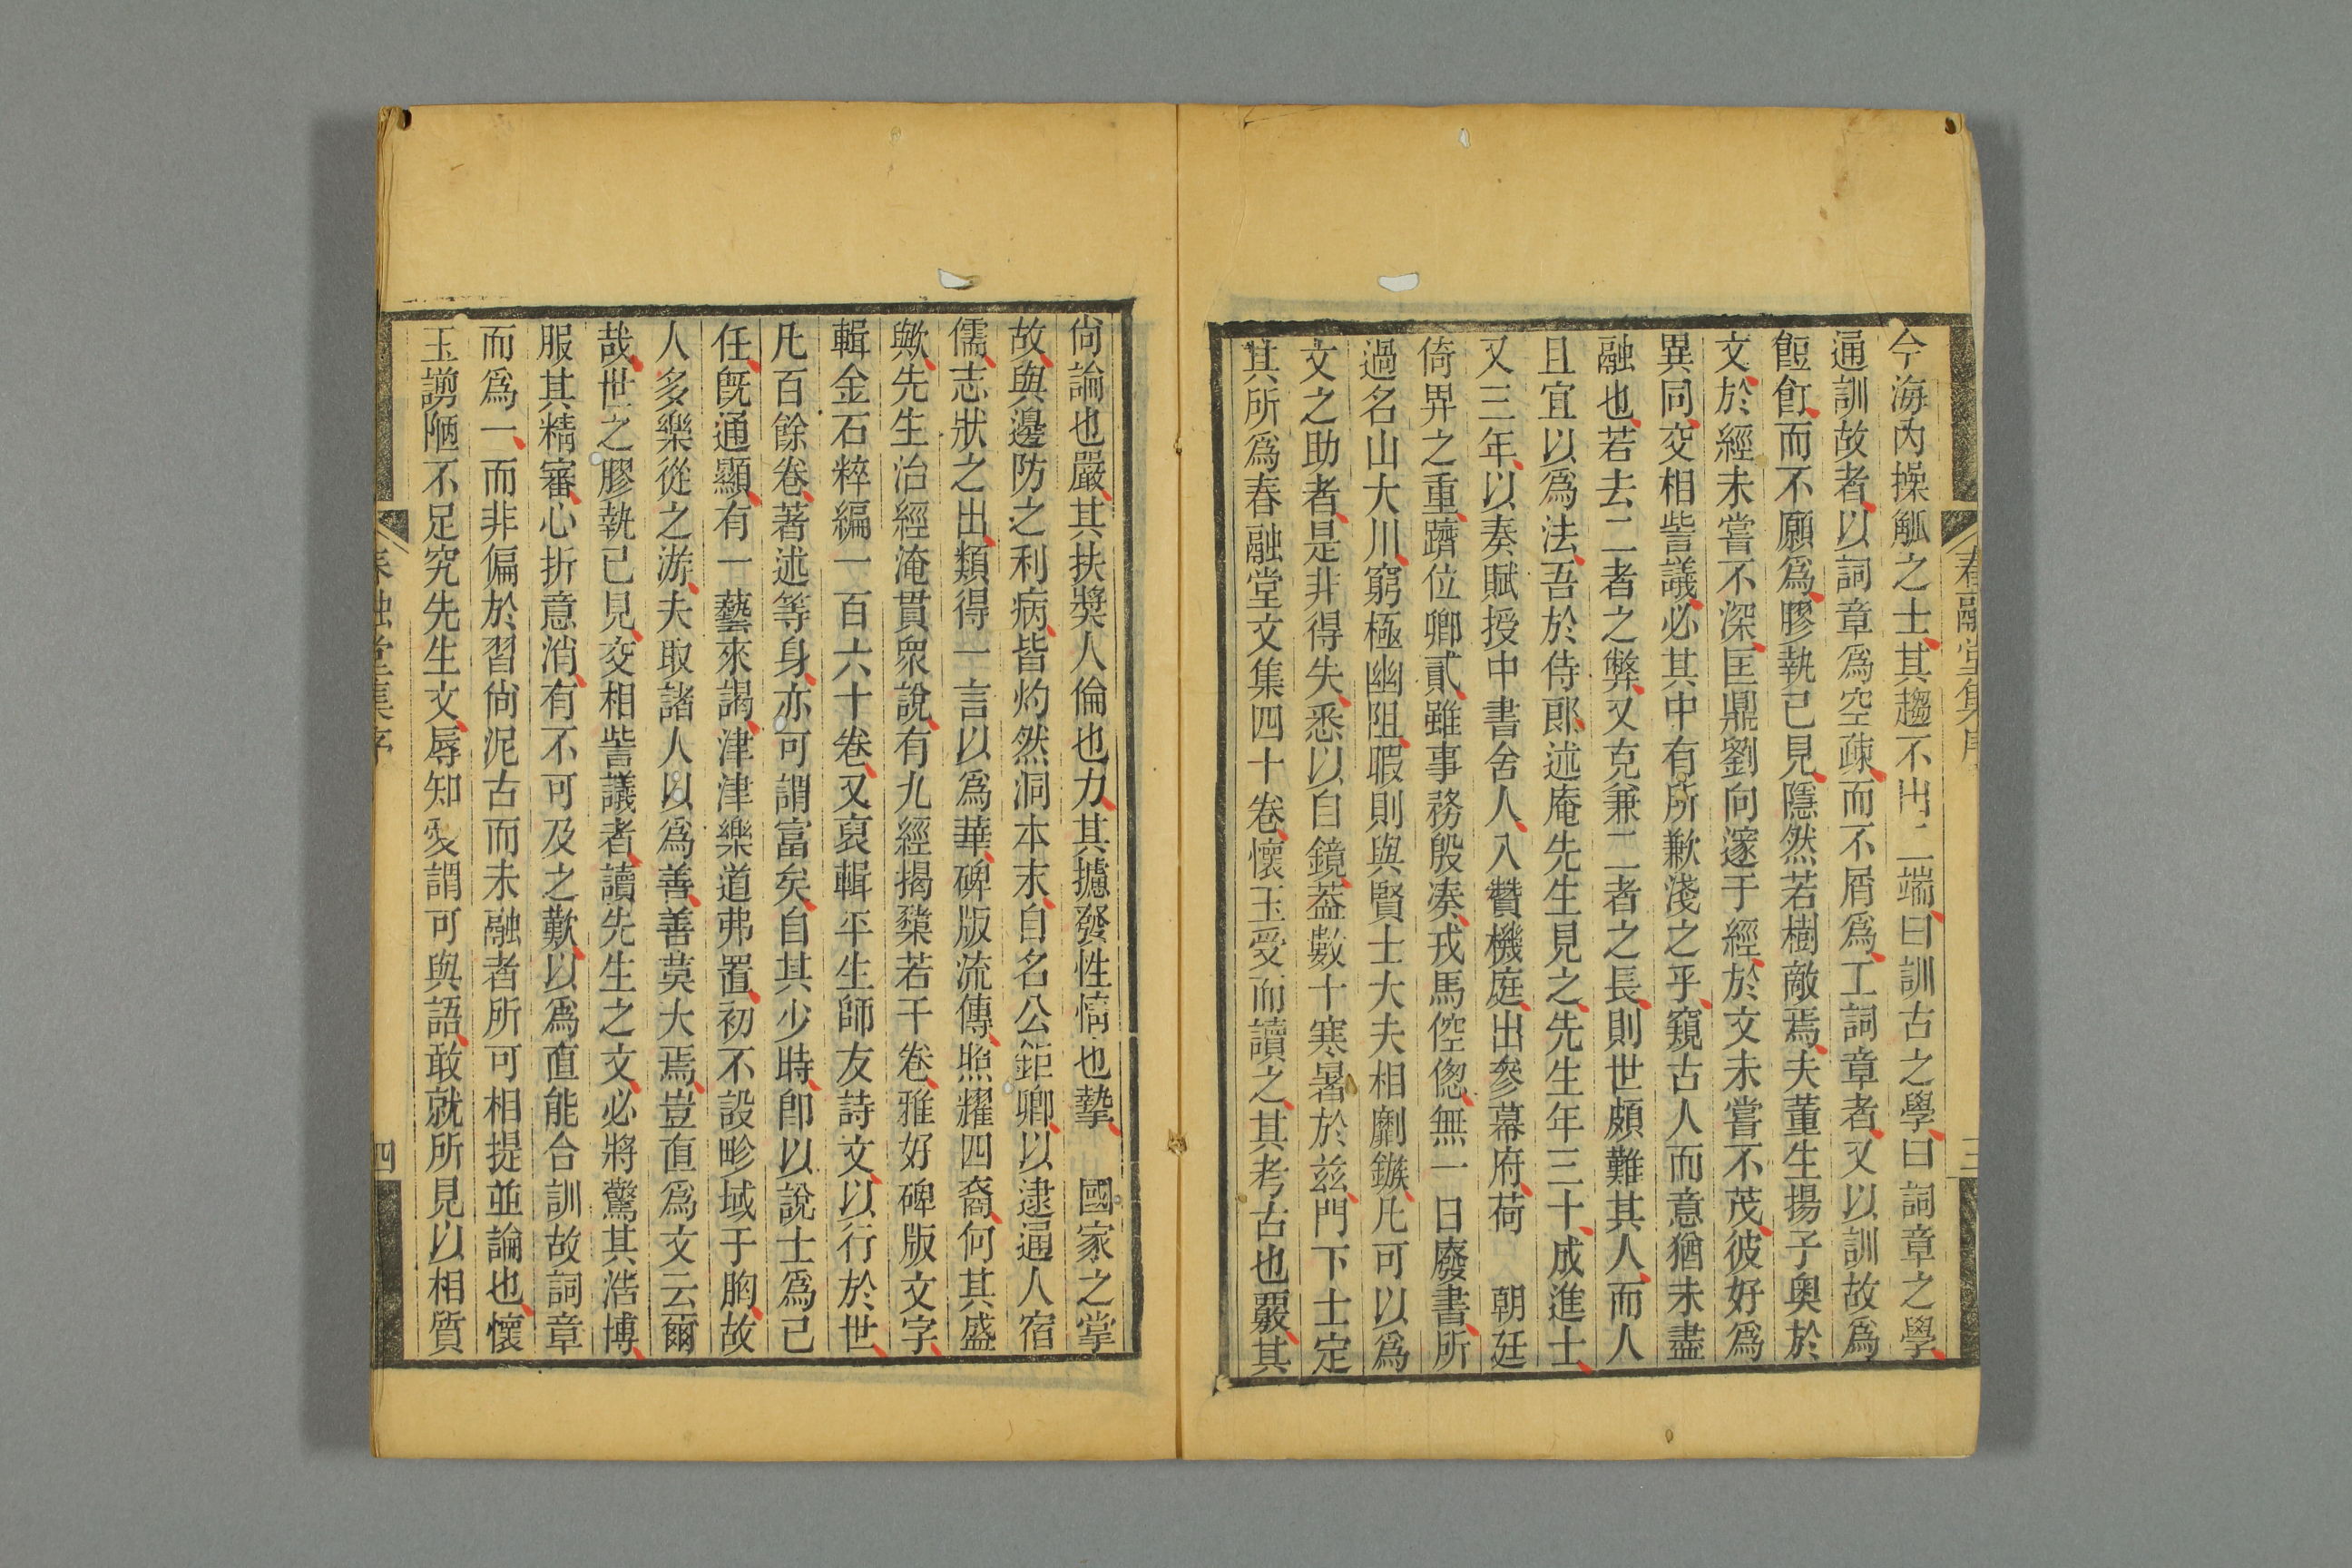 今海內操觚之士其趨不出二端曰訓古之學曰詞章之學
通訓故者以詞章爲空疎而不屑爲工詞章者又以訓故爲
餖飣而不願爲膠執已見隱然若樹敵焉夫董生揚子奧於
文於經未嘗不深匡鼎劉向邃于經於文未嘗不茂彼好爲
異同交相訾議必其中有所歉淺之乎窺古人而意猶未盡
融也若去二者之弊又克兼二者之長則世頗難其人而人
且宜以爲法吾於侍郎述庵先生見之先生年三十成進士
又三年以奏賦授中書舍人入贊機庭出參幕府荷　朝廷
倚畀之重躋位卿貳雖事務殷湊戎馬倥傯無一日廢書所
過名山大川窮極幽阻暇則與賢士大夫相劘鏃凡可以爲
文之助者是非得失悉以自鏡葢數十寒暑於兹門下士定
其所爲春融堂文集四十卷懷玉受而讀之其考古也覈其
春融堂集序
三
尙論也嚴其扶獎人倫也力其攄發性情也摯　國家之掌
故與邊防之利病皆灼然洞本末自名公鉅卿以逮通人宿
儒志狀之出類得一言以爲華碑版流傳照耀四裔何其盛
歟先生治經淹貫眾說有九經揭櫫若干卷雅好碑版文字
輯金石粹編一百六十卷又裒輯平生師友詩文以行於世
凡百餘卷著述等身亦可謂富矣自其少時卽以說士爲己
任旣通顯有一藝來謁津津樂道弗置初不設畛域于胸故
人多樂從之游夫取諸人以爲善善莫大焉豈直爲文云爾
哉世之膠執已見交相訾議者讀先生之文必將驚其浩博
服其精審心折意消有不可及之歎以爲直能合訓故詞章
而爲一而非偏於習尙泥古而未融者所可相提並論也懷
玉謭陋不足究先生文辱知爱謂可與語敢就所見以相質
春融堂集序
四